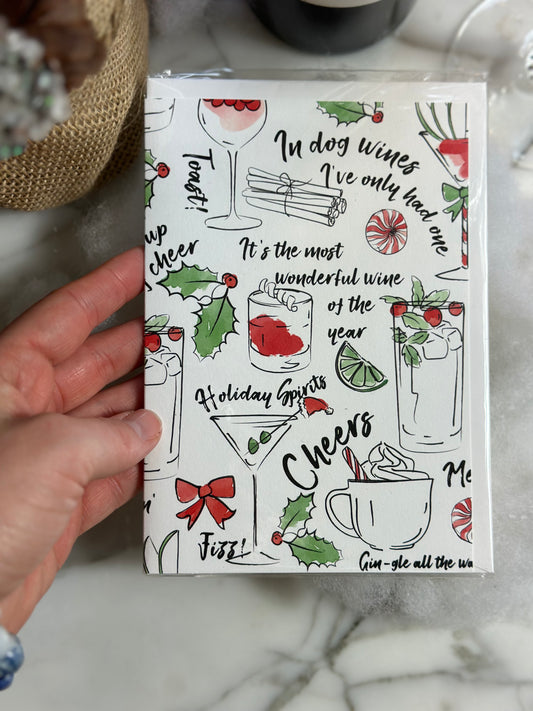 Toast!
In dog wines
I've only had one
up
cheer
It's the most
wonderful wine
of the
year
Holiday Spirits
Cheers
Fizz!
Gin-gle all the